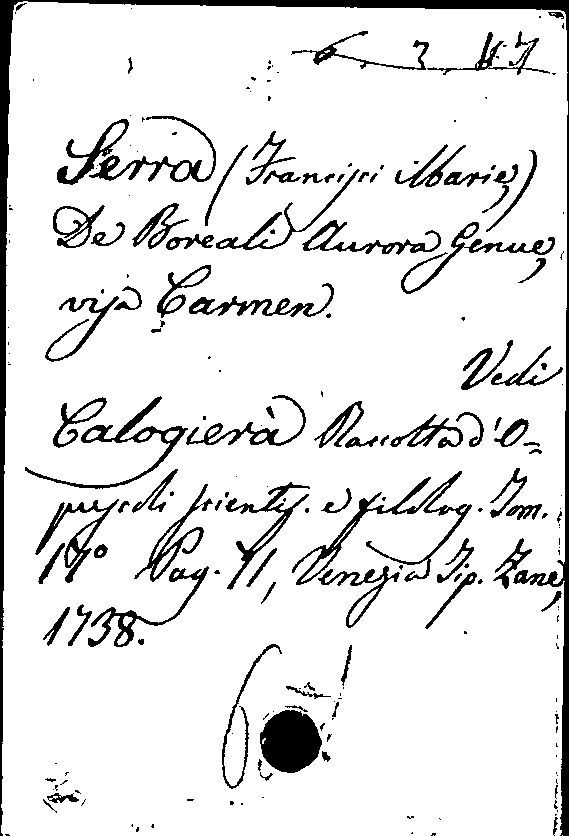 6. 3. 47
Serra (Francisci Mariæ)
De Boreali Aurora Genuæ
visa Carmen.
Vedi
Calogierà Raccolta d'O=
puscoli scientif. e filolog. Tom.
17° Pag. 71, Venezia Tip. Zane,
1738.